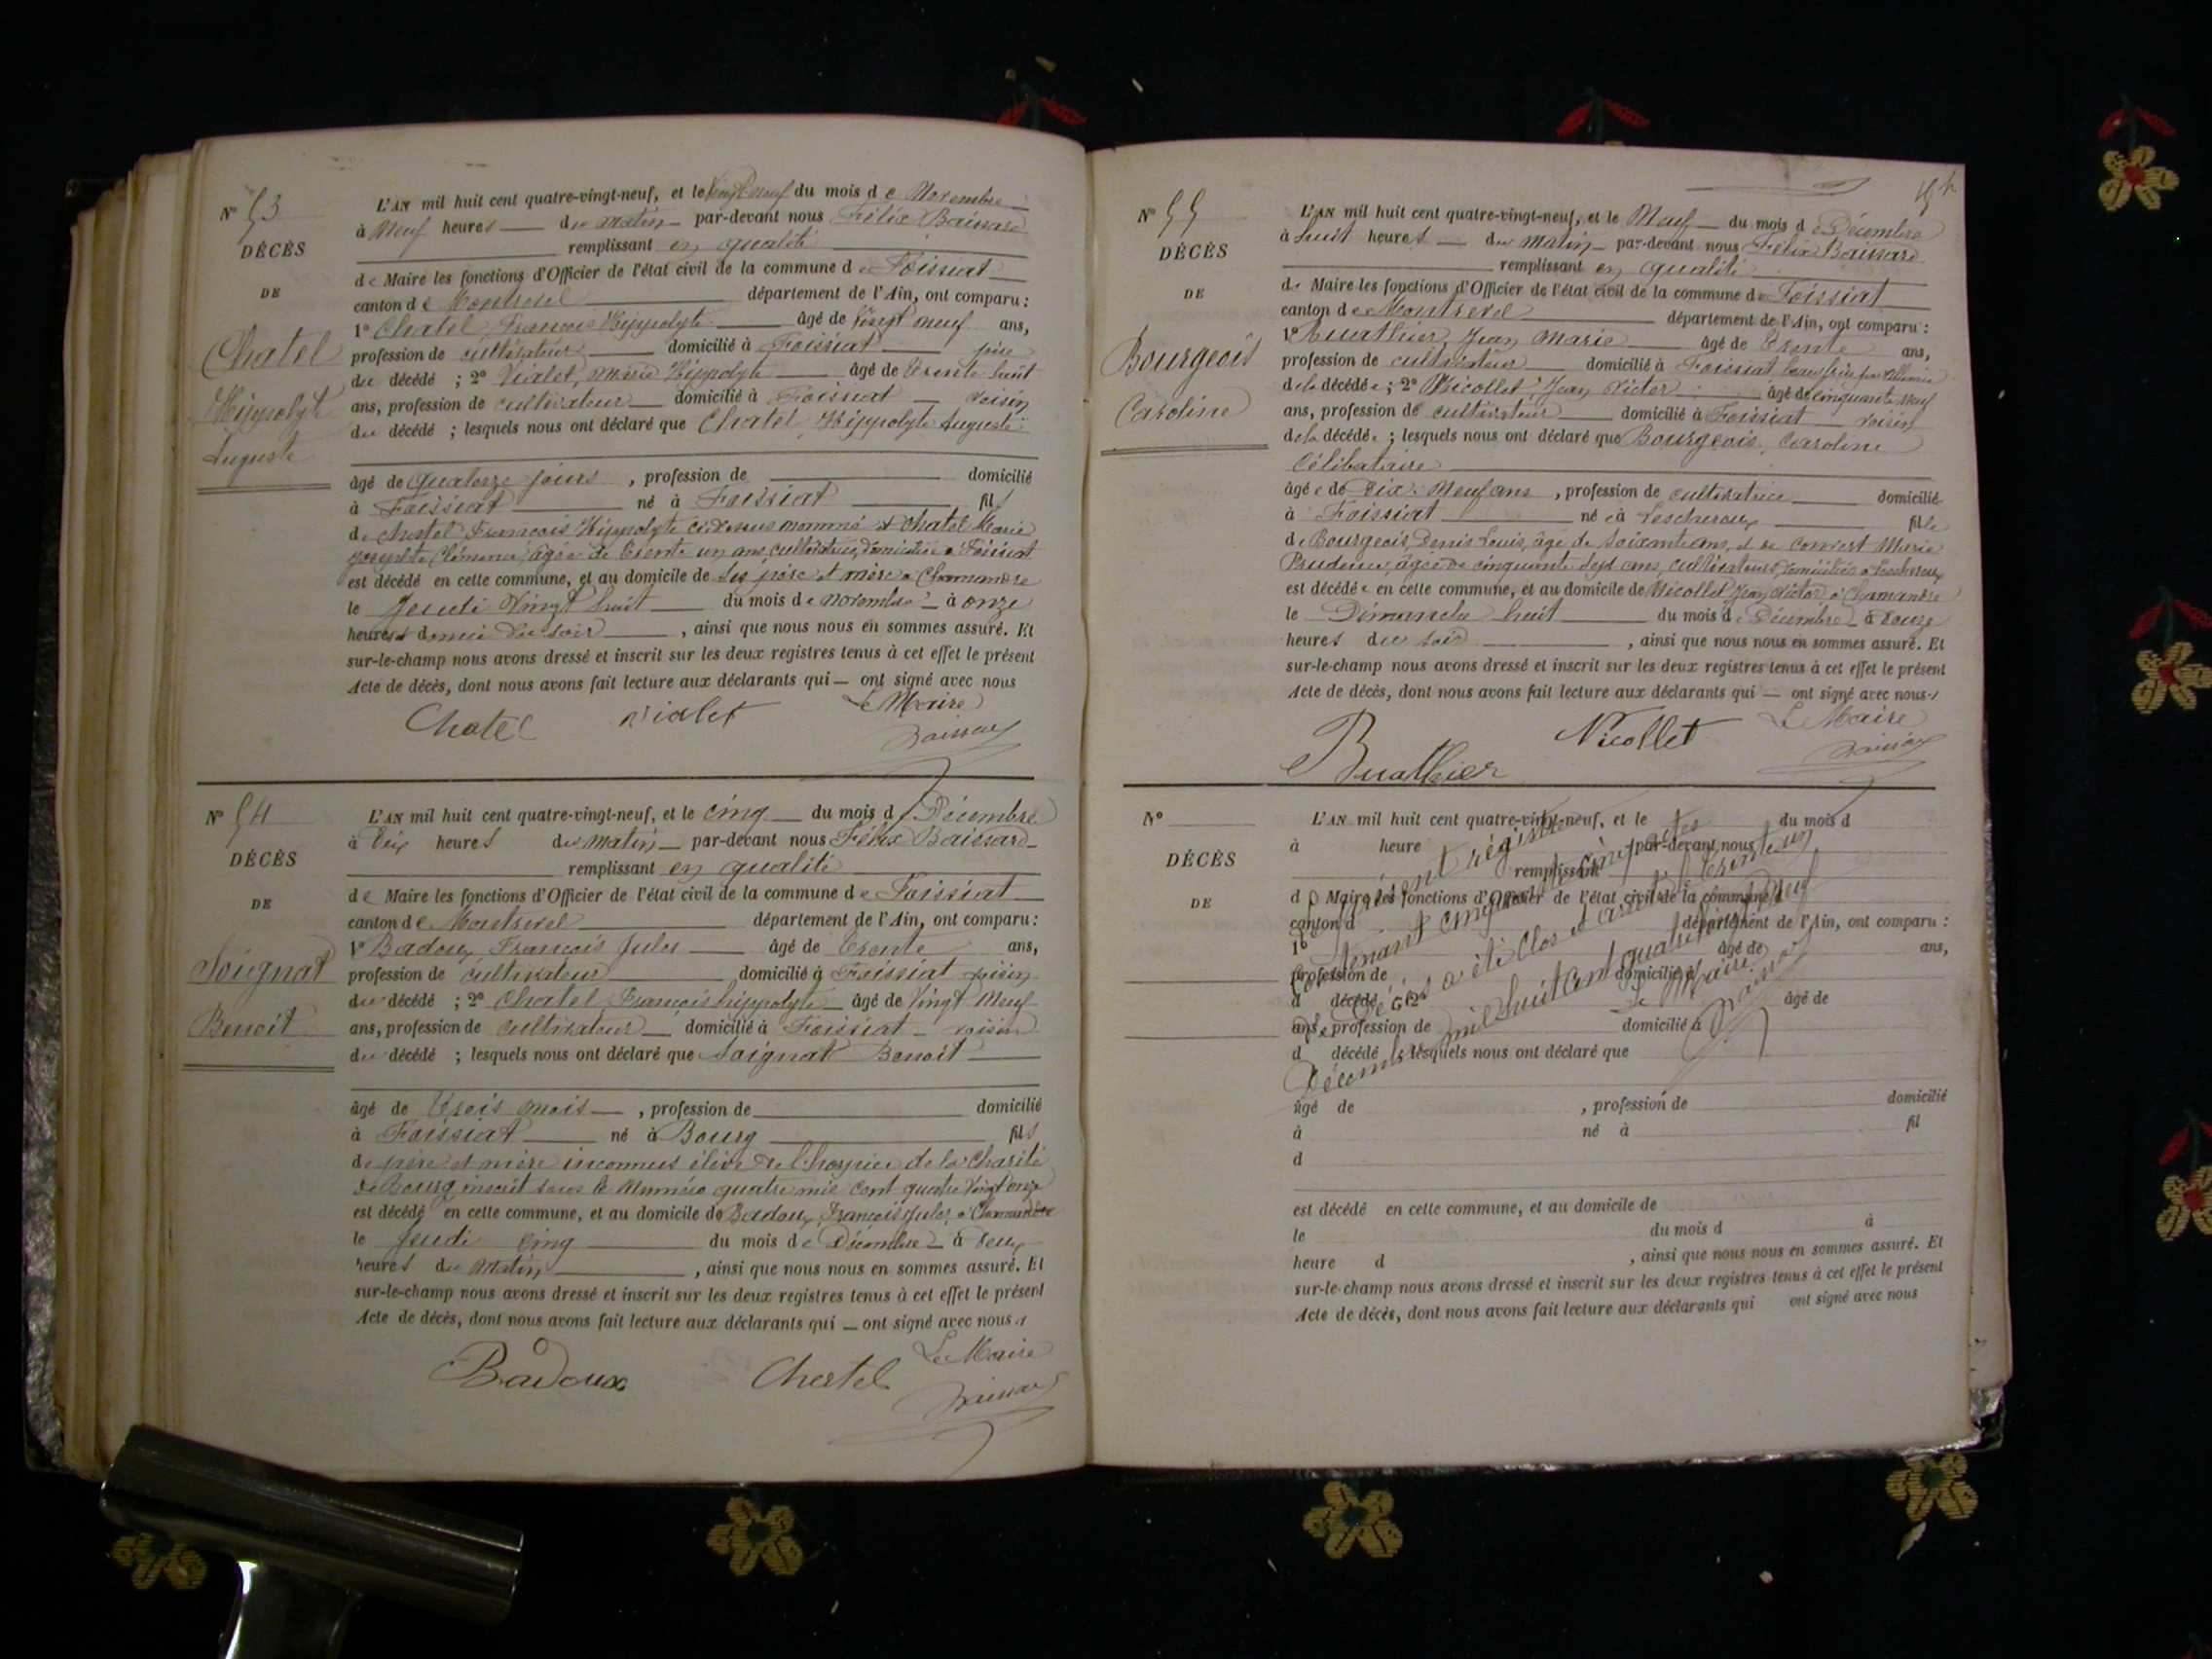 N° 53
DÉCÈS
DE
Chatel
Hippolyte
Auguste
L'AN mil huit cent quatre-vingt-neuf, et le vingt neuf du mois de Novembre
à Neuf heures du matin par-devant nous Félix Baissard
remplissant en qualité
de Maire les fonctions d'Officier de l'état civil de la commune de Foissiat
canton de Montrevel département de l'Ain, ont comparu :
1° Chatel, François Hippolyte âgé de Vingt neuf ans,
profession de cultivateur domicilié à Foissiat père
du décédé ; 2° Vialet, Marie Hippolyte âgé de Trente huit
ans, profession de cultivateur domicilié à Foissiat voisin
du décédé ; lesquels nous ont déclaré que Chatel, Hippolyte Auguste
âgé de Quatorze jours , profession de domicilié
à Foissiat né à Foissiat fils
de Chatel François Hippolyte ci-dessus nommé et Chatel Marie
Josephte Clémence, âgée de Trente un ans, cultivatrice, domiciliée à Foissiat
est décédé en cette commune, et au domicile de ses père et mère à Chamandre
le Jeudi Vingt huit du mois de novembre à onze
heures et demie du soir , ainsi que nous nous en sommes assuré. Et
sur-le-champ nous avons dressé et inscrit sur les deux registres tenus à cet effet le présent
Acte de décès, dont nous avons fait lecture aux déclarants qui — ont signé avec nous
Le Maire
Chatel Vialet Baissard
N° 54
DÉCÈS
DE
Soignat
Benoit
L'AN mil huit cent quatre-vingt-neuf, et le cinq du mois de Décembre
à Dix heures du Matin par-devant nous Félix Baissard
remplissant en qualité
de Maire les fonctions d'Officier de l'état civil de la commune de Foissiat
canton de Montrevel département de l'Ain, ont comparu :
1° Badoux François Jules âgé de Trente ans,
profession de cultivateur domicilié à Foissiat voisin
du décédé ; 2° Chatel François hippolyte âgé de Vingt Neuf
ans, profession de cultivateur domicilié à Foissiat voisin
du décédé ; lesquels nous ont déclaré que Soignat Benoit
âgé de Trois mois , profession de domicilié
à Foissiat né à Bourg fils
de père et mère inconnus élève de l'hospice de la Charité
de Bourg inscrit sous le Numéro quatre mil cent quatre vingt onze
est décédé en cette commune, et au domicile de Badoux, François Jules, à Chamandre
le Jeudi cinq du mois de Décembre à Deux
heures du Matin , ainsi que nous nous en sommes assuré. Et
sur-le-champ nous avons dressé et inscrit sur les deux registres tenus à cet effet le présent
Acte de décès, dont nous avons fait lecture aux déclarants qui — ont signé avec nous
Le Maire
Badoux Chatel Baissard
N° 55
DÉCÈS
DE
Bourgeois
Caroline
L'AN mil huit cent quatre-vingt-neuf, et le Neuf du mois de Décembre
à huit heures du Matin par-devant nous Félix Baissard
remplissant en qualité
de Maire les fonctions d'Officier de l'état civil de la commune de Foissiat
canton de Montrevel département de l'Ain, ont comparu :
1° Buathier, Jean Marie âgé de Trente ans,
profession de cultivateur domicilié à Foissiat beau frère par alliance
de la décédée ; 2° Nicollet, Jean Victor âgé de cinquante neuf
ans, profession de cultivateur domicilié à Foissiat voisin
de la décédée ; lesquels nous ont déclaré que Bourgeois, Caroline
Célibataire
âgée de Dix Neuf ans , profession de cultivatrice domicilié
à Foissiat née à Lescheroux fille
de Bourgeois, Denis Louis, âgé de soixante ans, et de Convert Marie
Prudence, âgée de cinquante sept ans, cultivateurs, domiciliés à Lescheroux
est décédée en cette commune, et au domicile de Nicollet Jean Victor à Chamandre
le Dimanche huit du mois de Décembre à Douze
heures du soir , ainsi que nous nous en sommes assuré. Et
sur-le-champ nous avons dressé et inscrit sur les deux registres tenus à cet effet le présent
Acte de décès, dont nous avons fait lecture aux déclarants qui — ont signé avec nous
Le Maire
Buathier Nicollet Baissard
N°
DÉCÈS
DE
L'AN mil huit cent quatre-vingt-neuf, et le du mois d
à heure par-devant nous
remplissant
d Maire les fonctions d'Officier de l'état civil de la commune d
canton d département de l'Ain, ont comparu :
1° âgé de ans,
profession de domicilié à
d décédé ; 2° âgé de
ans, profession de domicilié à
d décédé ; lesquels nous ont déclaré que
âgé de , profession de domicilié
à né à fil
d
est décédé en cette commune, et au domicile de
le du mois d à
heure d , ainsi que nous nous en sommes assuré. Et
sur-le-champ nous avons dressé et inscrit sur les deux registres tenus à cet effet le présent
Acte de décès, dont nous avons fait lecture aux déclarants qui ont signé avec nous
présent régistre
Contenant cinquante cinq actes
de Décès a été clos et arrêté le trente un
Décembre mil huit cent quatre vingt neuf
Le Maire
Baissard